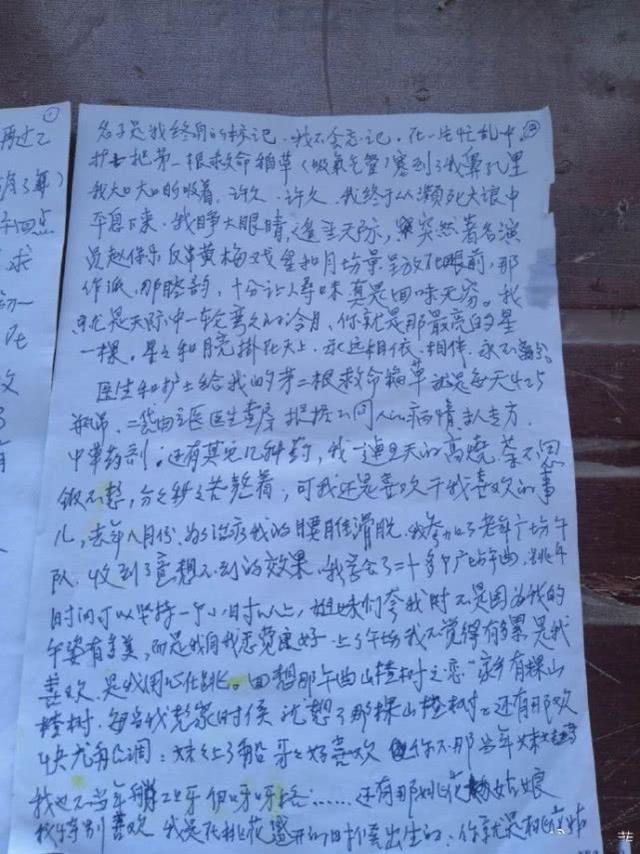 名子是我终身的标记，我不会忘记，在一片忙乱中，
护士把第一根救命稻草（吸氧气管）塞到了我鼻孔里
我大口大口的吸着，许久，许久，我终于从濒死大浪中
平息下来，我睁大眼睛，遥望天际，突然著名演
员赵保乐反串黄梅戏星和月场景呈放在眼前，那
作派，那腔韵，十分让人寻味真是回味无穷。我
就是天际中一轮弯弯的冷月，你就是那最亮的星
一棵。星星和月亮掛在天上，永远相依，相伴，永不
医生和护士给我的第二根救命稻草就是每天4至5
瓶吊，二袋由主医医生 根据不同人的病情 专方，
中草药剂。还有其它几种药，我一连几天的高烧，茶不思
饭不想，分分秒秒苦熬着，可我还是喜欢干我喜欢的事
儿，去年八月份，为了治疗我的腰椎滑脱，我参加了老年广场午
队，收到了意想不到的效果，我学会了二十多个广场午曲，跳午
时间可以坚持一个小时以上，姐妹们夸我时不是因为我的
午姿有多美，而是我 上了午场我不觉得有多累，是我
喜欢，是我用心在跳。回想那午曲山楂树之恋"家乡有棵山
楂树，每当我 家时侯 想了那棵山楂树"还有那欢
快 调：妹妹上了船 喜欢 你 那当年妹妹
我也不当年 ……还有那桃花 姑娘
我特别喜欢，我是在桃花盛开的时候出生的，你就是桃花姑
①
③
再过2
年
四点
求
初一
在